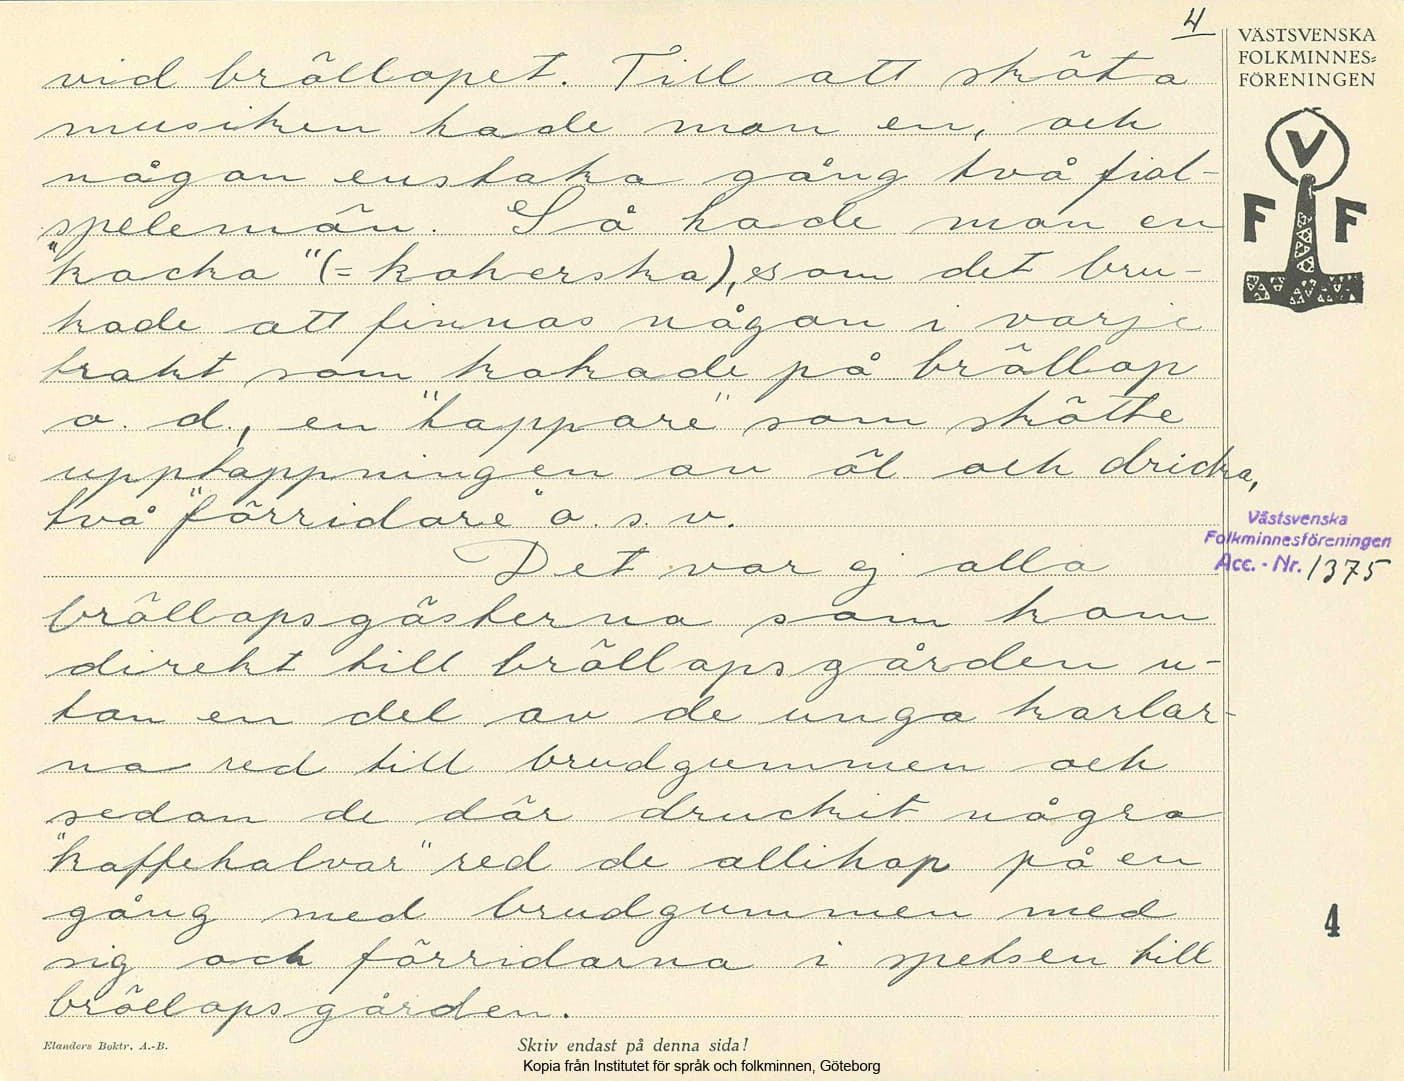 4
VÄSTSVENSKA
FOLKMINNES=
FÖRENINGEN
V
F F
vid bröllopet. Till att sköta
musiken hade man en, och
någon enstaka gång två fiol-
spelemän. Så hade man en
"kocka" (= kokerska), som det bru-
kade att finnas någon i varje
trakt som kokade på bröllop
o. d., en "tappare" som skötte
upptappningen av öl och dricka,
två "förridare" o. s. v.
Västsvenska
Folkminnesföreningen
Acc. - Nr. 1375
Det var ej alla
bröllopsgästerna som kom
direkt till bröllopsgården u-
tan en del av de unga karlar-
na red till brudgummen och
sedan de där druckit några
"kaffehalvar" red de allihop på en
gång med brudgummen med
sig och förridarna i spetsen till
bröllopsgården.
4
Elanders Boktr. A.-B.
Skriv endast på denna sida!
Kopia från Institutet för språk och folkminnen, Göteborg